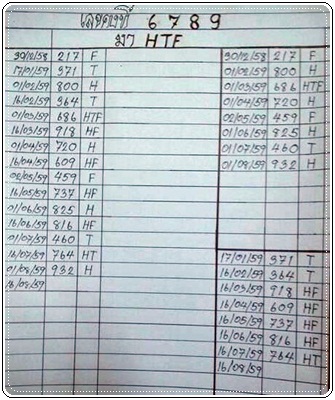 เลขดับที่ 6 7 8 9
มา HTF
30/12/58 217 F
17/01/59 371 T
01/02/59 800 H
16/02/59 364 T
01/03/59 686 HTF
16/03/59 918 HF
01/04/59 720 H
16/04/59 609 HF
02/05/59 459 F
16/05/59 737 HF
01/06/59 825 H
16/06/59 816 HF
01/07/59 460 T
16/07/59 764 HT
01/08/59 932 H
16/08/59
30/12/58 217 F
01/02/59 800 H
01/03/59 686 HTF
01/04/59 720 H
02/05/59 459 F
01/06/59 825 H
01/07/59 460 T
01/08/59 932 H
17/01/59 371 T
16/02/59 364 T
16/03/59 918 HF
16/04/59 609 HF
16/05/59 737 HF
16/06/59 816 HF
16/07/59 764 HT
16/08/59